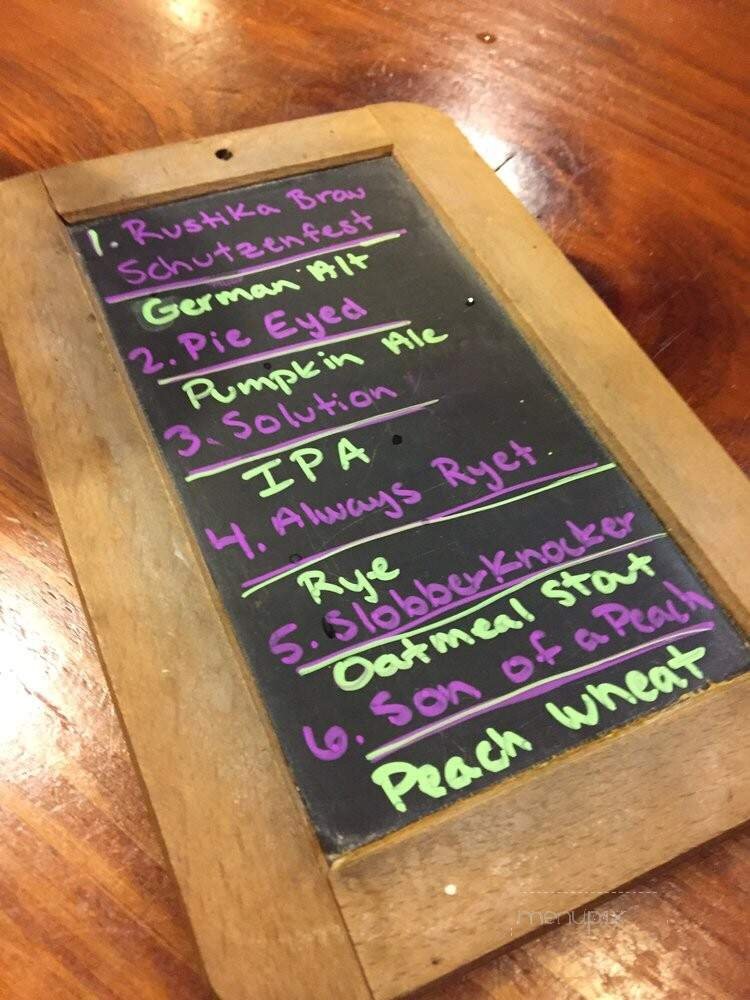 1. Rustika Brau
Schutzenfest
German Alt
2. Pie Eyed
Pumpkin Ale
3. Solution
IPA
4. Always Ryet
Rye
5. Slobberknocker
Oatmeal Stout
6. Son of a Peach
Peach Wheat
menupix